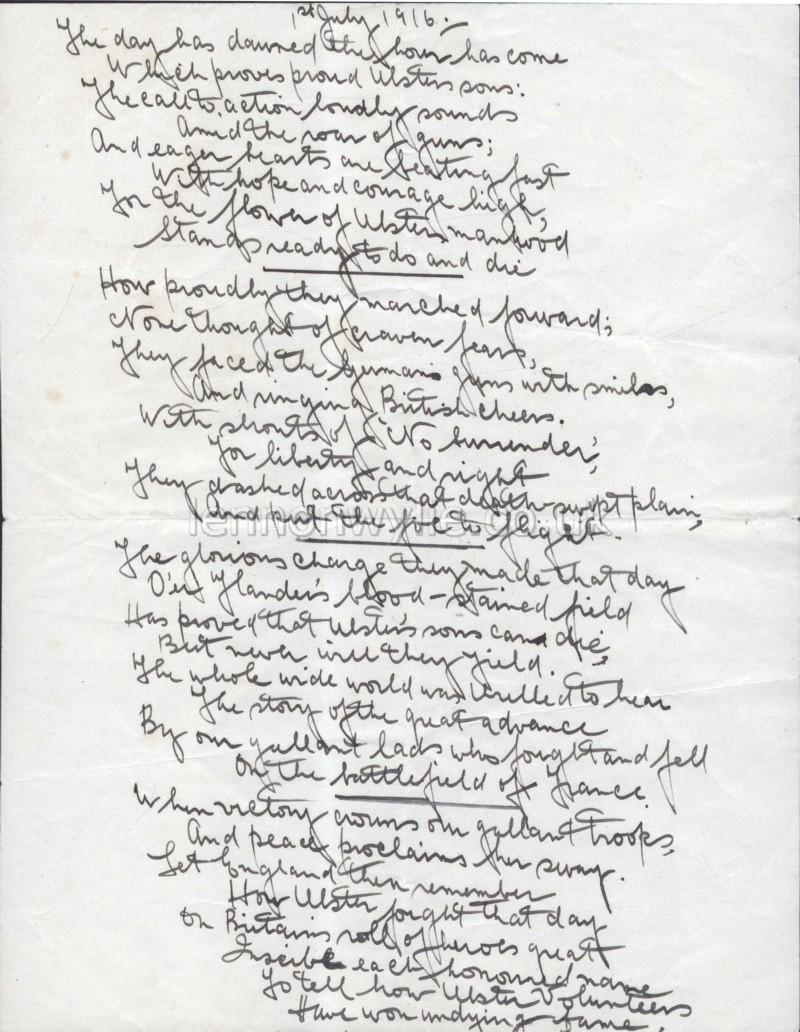 1st July, 1916.
The day has dawned the hour has come
Which proves proud Ulsters sons:
The call to action loudly sounds
Amid the roar of guns;
And eager hearts are beating fast
With hope and courage high,
For the flower of Ulsters manhood
Stands ready to do and die
How proudly they marched forward;
None thought of craven fears,
They faced the Germans guns with smiles,
And ringing British cheers.
With shouts of "No Surrender",
For liberty and right
They dashed across that death-swept plain,
And put the foe to flight.
lennonwylie.co.uk
The glorious charge they made that day
O'er Flander's blood-stained field
Has proved that Ulster's sons can die,
But never will they yield.
The whole wide world was thrilled to hear
The story of the great advance
By our gallant lads who fought and fell
On the battlefield of France.
When victory crowns our gallant troops,
And peace proclaims her sway.
Let England then remember
How Ulster fought that day
On Britains roll of heroes great
Inscibe each honoured name
To tell how Ulster Volunteers
Have won undying fame.